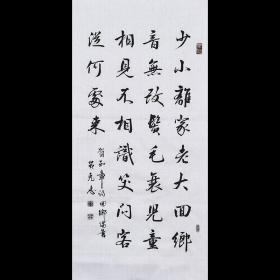 少小離家老大回鄉
音無改鬢毛衰兒童
相見不相識笑問客
從何處來
賀知章詩回鄉偶書